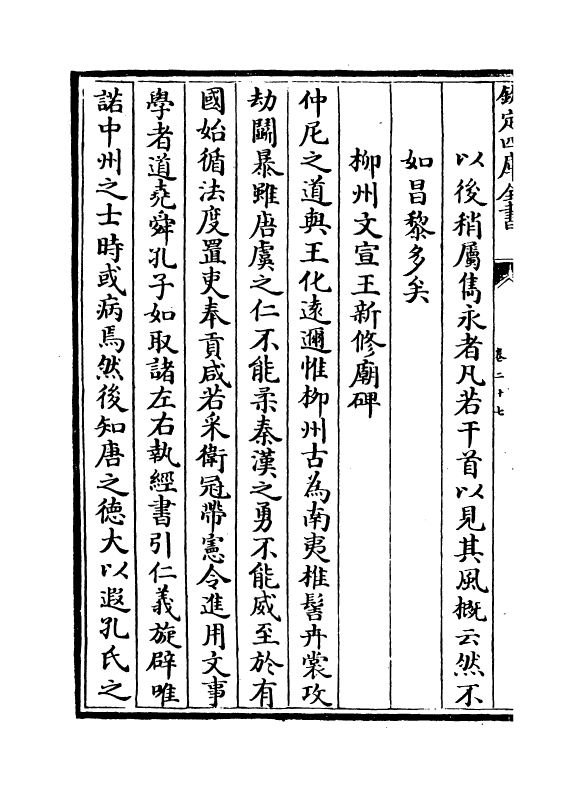 欽定四庫全書
卷二十七
以後稍屬雋永者凡若干首以見其風概云然不
如昌黎多矣
柳州文宣王新修廟碑
仲尼之道與王化遠邇惟柳州古為南夷椎髻卉裳攻
劫鬭暴雖唐虞之仁不能柔秦漢之勇不能威至於有
國始循法度置吏奉貢咸若采衛冠帶憲令進用文事
學者道堯舜孔子如取諸左右執經書引仁義旋辟唯
諾中州之士時或病焉然後知唐之德大以遐孔氏之